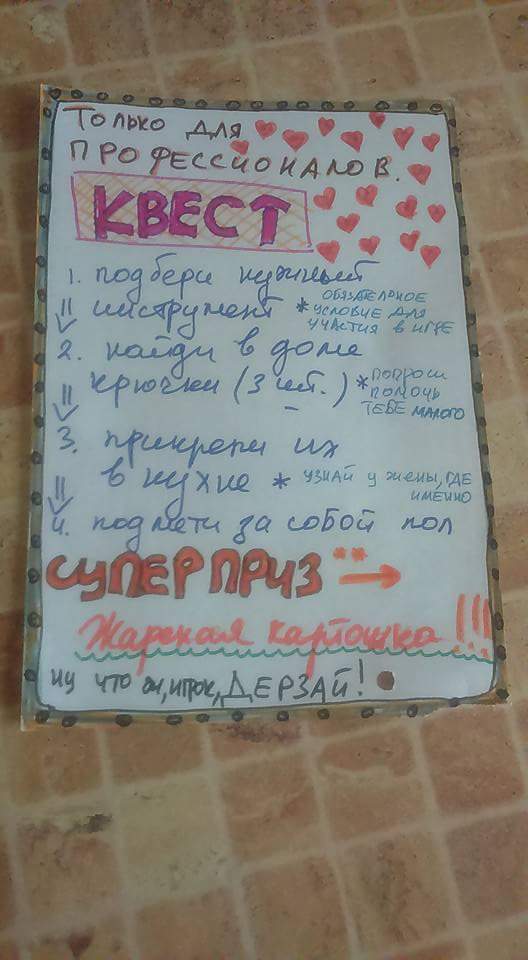 ТОЛЬКО ДЛЯ
ПРОФЕССИОНАЛОВ.
КВЕСТ
1. подбери нужный
инструмент * ОБЯЗАТЕЛЬНОЕ
УСЛОВИЕ ДЛЯ
УЧАСТИЯ В ИГРЕ
2. найди в доме
крючки (3 шт.) * ПОПРОСИ
ПОМОЧЬ
ТЕБЕ МАЛОГО
3. прикрепи их
в кухне * УЗНАЙ У ЖЕНЫ, ГДЕ
ИМЕННО
4. подмети за собой пол
СУПЕР ПРИЗ **
Жареная картошка!!!
НУ ЧТО Ж, ИГРОК, ДЕРЗАЙ!